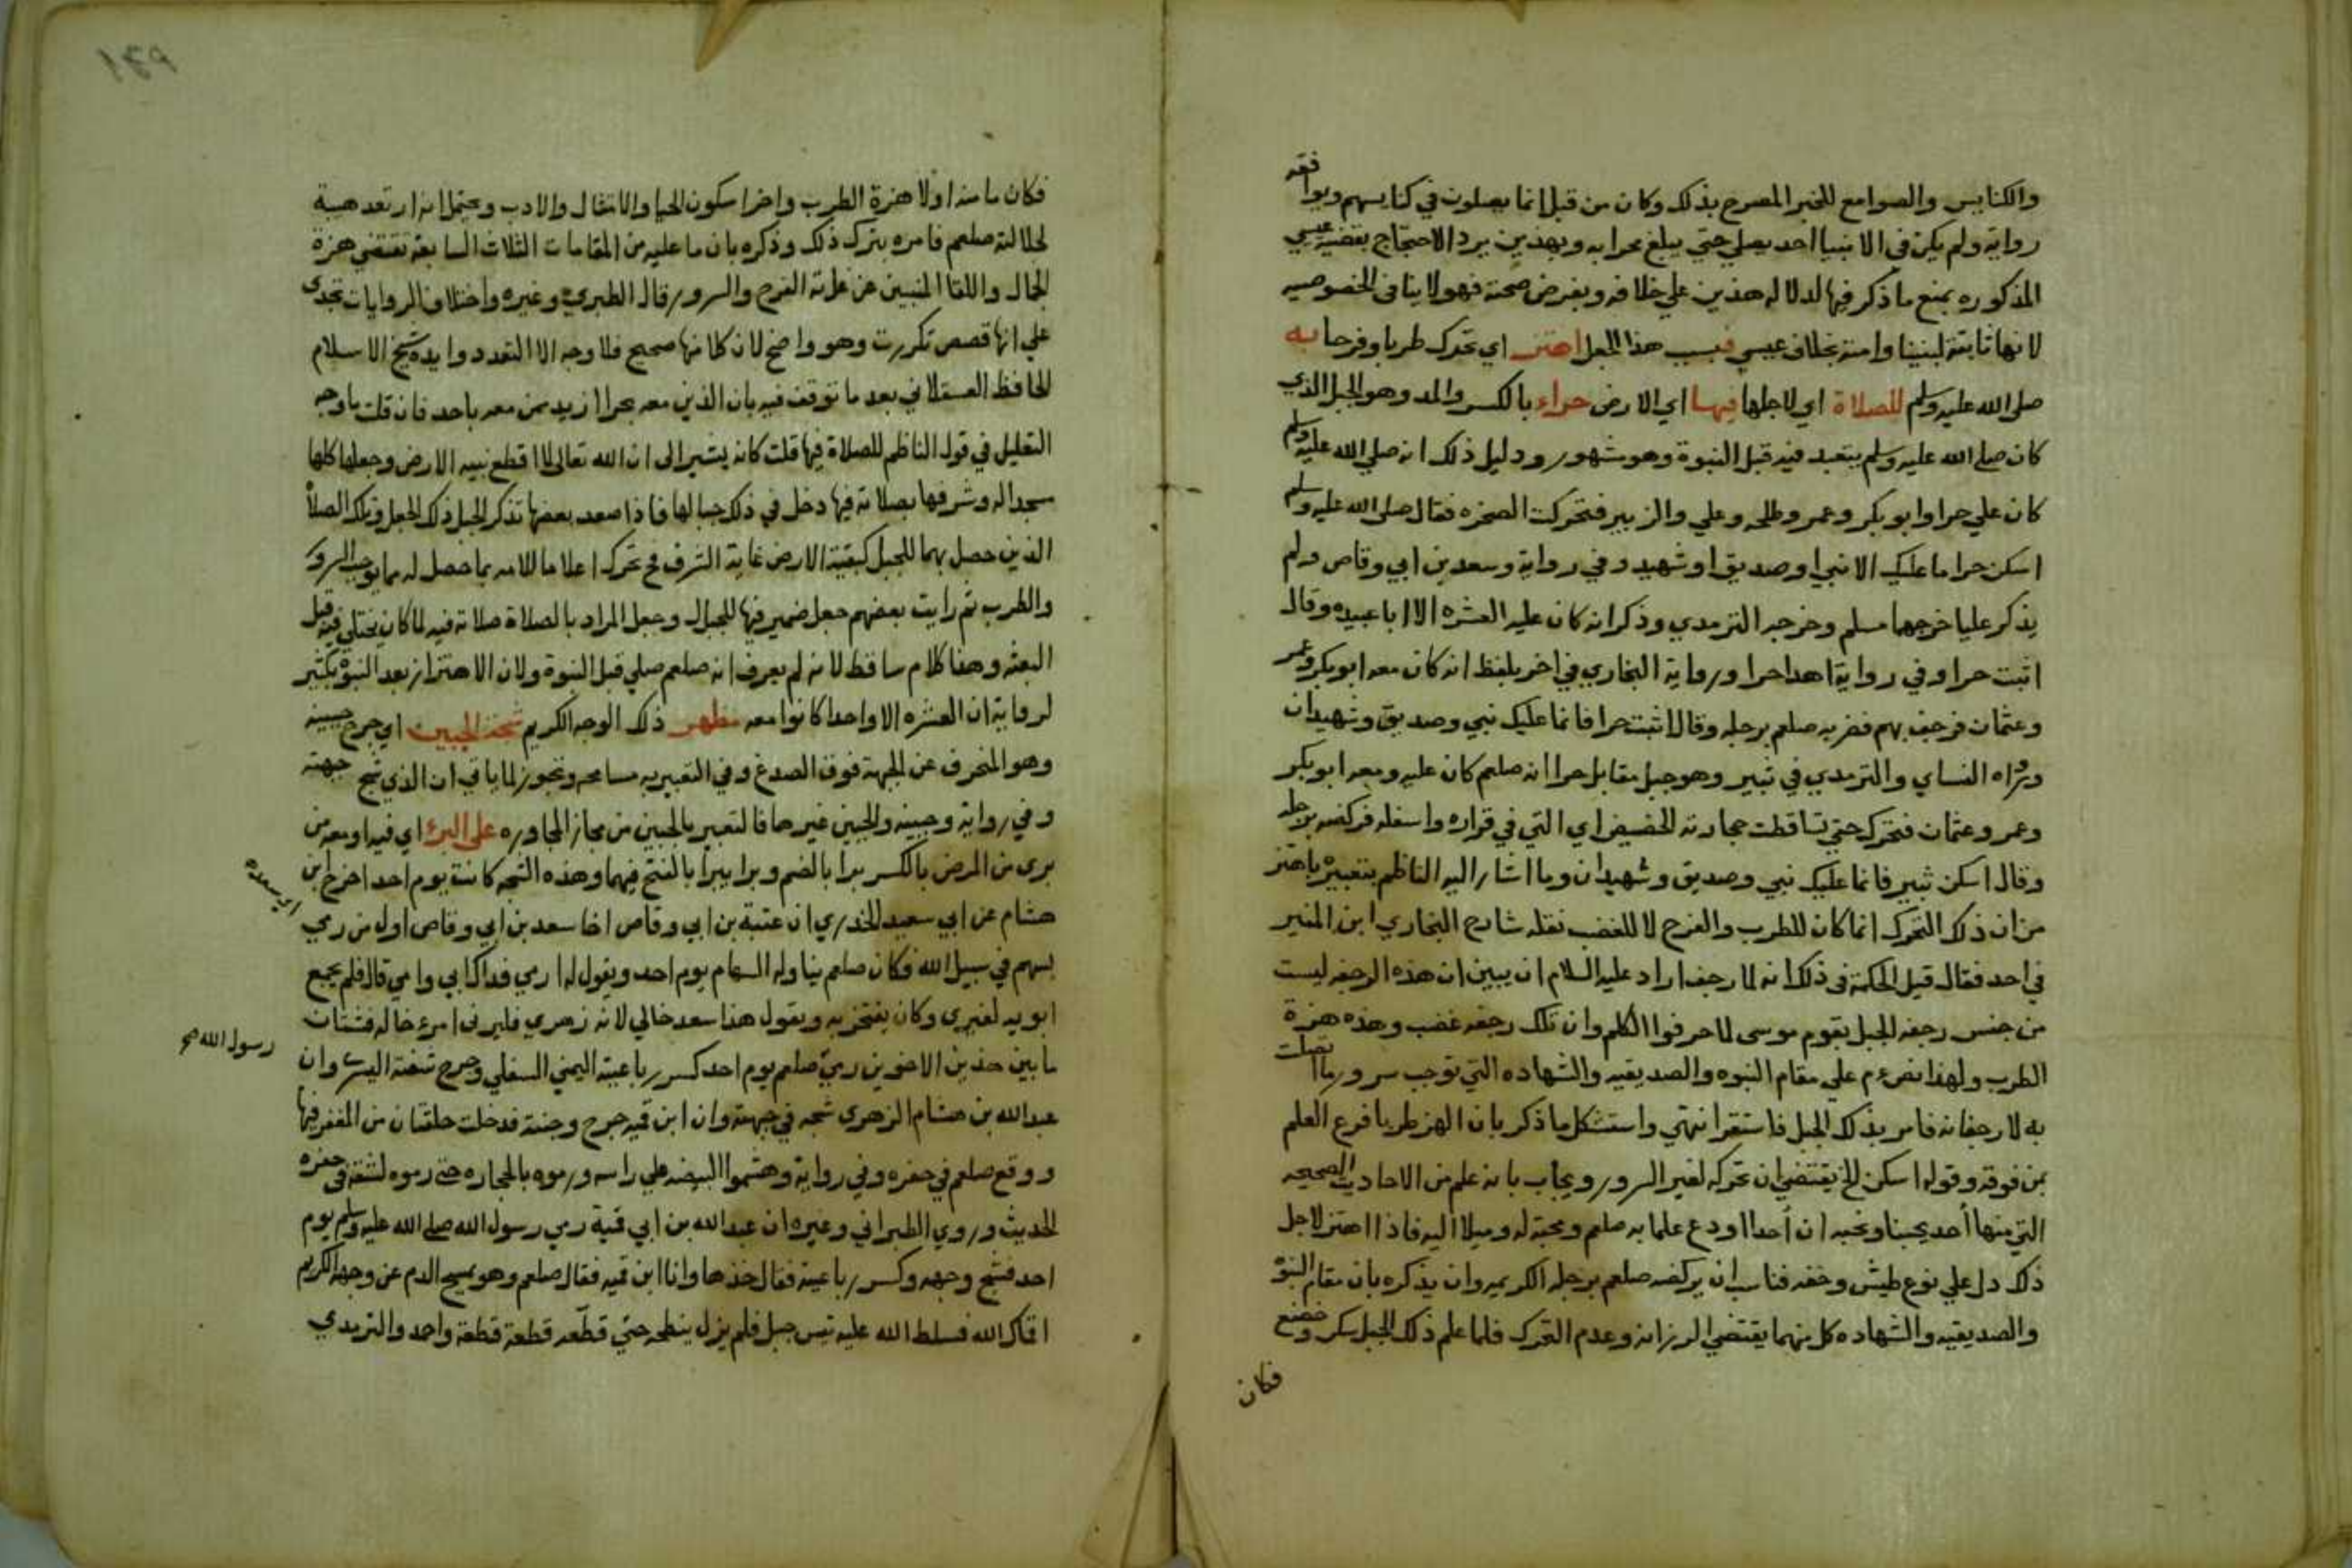 والكنايس والصوامع للخبر المصرح بذلك وكان من قبل انما يصلون في كنايسهم ويوافقه
رواية ولم يكن في الانبيا احد يصلي حتي يبلغ محرابه وبهذين يرد الاحتجاج بقضية عيسي
المذكوره بمنع ما ذكر فيها لدلالة هذين علي خلافه وبفرض صحته فهو لا ينافي الخصوصيه
لانها ثابتة لنبينا وامته بخلاف عيسي فبسبب هذا الجعل اهتز اي تحرك طربا وفرحا به
صلى الله عليه وسلم للصلاة اي لاجلها فيها اي الارض حراء بالكسر والمد وهو الجبل الذي
كان صلى الله عليه وسلم يتعبد فيه قبل النبوة وهو مشهور ودليل ذلك انه صلي الله عليه وسلم
كان علي حرا وابو بكر وعمر وطلحه وعلي والزبير فتحركت الصخره فقال صلى الله عليه وسلم
اسكن حرا ما عليك الا نبي او صديق او شهيد وفي رواية وسعد بن ابي وقاص ولم
يذكر عليا خرجهما مسلم وخرجه الترمدي وذكر انه كان عليه العشره الا ابا عبيده وقال
اثبت حرا وفي رواية اهدا حرا ورواية البخاري في اخر بلفظ انه كان معه ابو بكر وعمر
وعثمان فرجف بهم فضربه صلعم برجله وقال اثبت حرا فانما عليك نبي وصديق وشهيدان
ورواه النساي والترمدي في ثبير وهو جبل مقابل حرا انه صلعم كان عليه ومعه ابو بكر
وعمر وعثمان فتحرك حتي تساقطت حجارته للحضيض اي التي في قراره واسفله فركضه برجله
وقال اسكن ثبير فانما عليك نبي وصديق وشهيدان وما اشار اليه الناظم بتعبيره باهتز
من ان ذلك التحرك انما كان للطرب والفرح لا للغضب نقله شارح البخاري ابن المنير
في احد فقال قيل الحكمة في ذلك انه لما رجف اراد عليه السلام ان يبين ان هذه الرجفه ليست
من جنس رجفه الجبل بقوم موسى لما حرفوا الكلم وان تلك رجفه غضب وهذه هزة
الطرب ولهذا نص عم علي مقام النبوه والصديقيه والشهاده التي توجب سرور ما اتصلت
به لا رجفانه فامر بذلك الجبل فاستقر انتهي واستشكل ما ذكر بان الهز طربا فرع العلم
بمن فوقه وقوله اسكن الخ يقتضي ان تحركه لغير السرور ويجاب بانه علم من الاحاديث الصحيحه
التي منها أحد يحبنا ونحبه ان أحدا اودع علما به صلعم ومحبة له وميلا اليه فاذا اهتز لاجل
ذلك دل علي نوع طيش وخفه فناسب ان يركضه صلعم برجله الكريمه وان يذكره بان مقام النبوة
والصديقيه والشهاده كل منهما يقتضي الرزانه وعدم التحرك فلما علم ذلك الجبل سكر وخضع
فكان
١٤٩
فكان ما منه اولا هزة الطرب واخرا سكون الحيا والامتثال والادب ويحتمل انه ارتعد هيبة
لجلالته صلعم فامره بترك ذلك وذكره بان ما عليه من المقامات الثلاث السابقة تقتضي هزة
الجمال واللقا المنبيين عن غاية الفرح والسرور قال الطبري وغيره واختلاف الروايات تحمل
علي انها قصص تكررت وهو واضح لان كلا منها صحيح فلا وجه الا التعدد وايده شيخ الاسلام
الحافظ العسقلاني بعد ما توقف فيه بان الذين معه بحرا ازيد ممن معه باحد فان قلت ما وجه
التعليل في قول الناظم للصلاة فيها قلت كانه يشير الى ان الله تعالى لما اقطع نبيه الارض وجعلها كلها
مسجدا له وشرفها بصلاته فيها دخل في ذلك جبالها فاذا صعد بعضها تذكر الجبل ذلك الجعل وتلك الصلاة
الذين حصل بهما للجبل كبقية الارض غاية الشرف فح تحرك اعلاما للامه بما حصل له مما يوجب السرور
والطرب ثم رايت بعضهم جعل ضمير فيها للجبال وجعل المراد بالصلاة صلاته فيه لما كان يختلي فيه قبل
البعثه وهذا كلام ساقط لانه لم يعرف انه صلعم صلي قبل النبوة ولان الاهتزاز بعد النبوة بكثير
لرواية ان العشره الا واحدا كانوا معه مظهر ذلك الوجه الكريم شجة الجبين اي جرح جبينه
وهو المنحرف عن الجبهة فوق الصدغ وفي التعبير به مسامحه وتجوز لما ياتي ان الذي شج جبهته
وفي رواية وجبينه والجبين غيرها فالتعبير بالجبين من مجاز المجاوره على البرء اي فيه او معه من
بري من المرض بالكسر برا بالضم وبرا يبرا بالفتح فيهما وهذه الشجه كانت يوم احد اخرج ابن
هشام عن ابي سعيد الخدري ان عتبة بن ابي وقاص اخا سعد بن ابي وقاص اول من رمي
بسهم في سبيل الله فكان صلعم يناوله السهام يوم احد ويقول له ارمي فداك ابي وامي قال فلم يجمع
ابويه لغيري وكان يفتخر به ويقول هذا سعد خالي لانه زهري فليرني امرء خاله فشتان
ما بين هذين الاخوين رمي صلعم يوم احد كسر رباعيته اليمني السفلي وجرح شفته اليسرى وان
رسول الله صح
عبد الله بن هشام الزهري شجه في جبهته وان ابن قميه جرح وجنته فدخلت حلقتان من المغفر فيها
ووقع صلعم في حفره وفي رواية وهشموا البيضه علي راسه ورموه بالحجاره حتى رموه لشقه في حفره
الحديث وروي الطبراني وغيره ان عبد الله بن ابي قمية رمي رسول الله صلى الله عليه وسلم يوم
احد فشج وجهه وكسر رباعيته فقال خذها وانا ابن قميه فقال صلعم وهو يمسح الدم عن وجهه الكريم
اقماك الله فسلط الله عليه تيس جبل فلم يزل ينطحه حتي قطعه قطعة قطعة واحد والتريدي